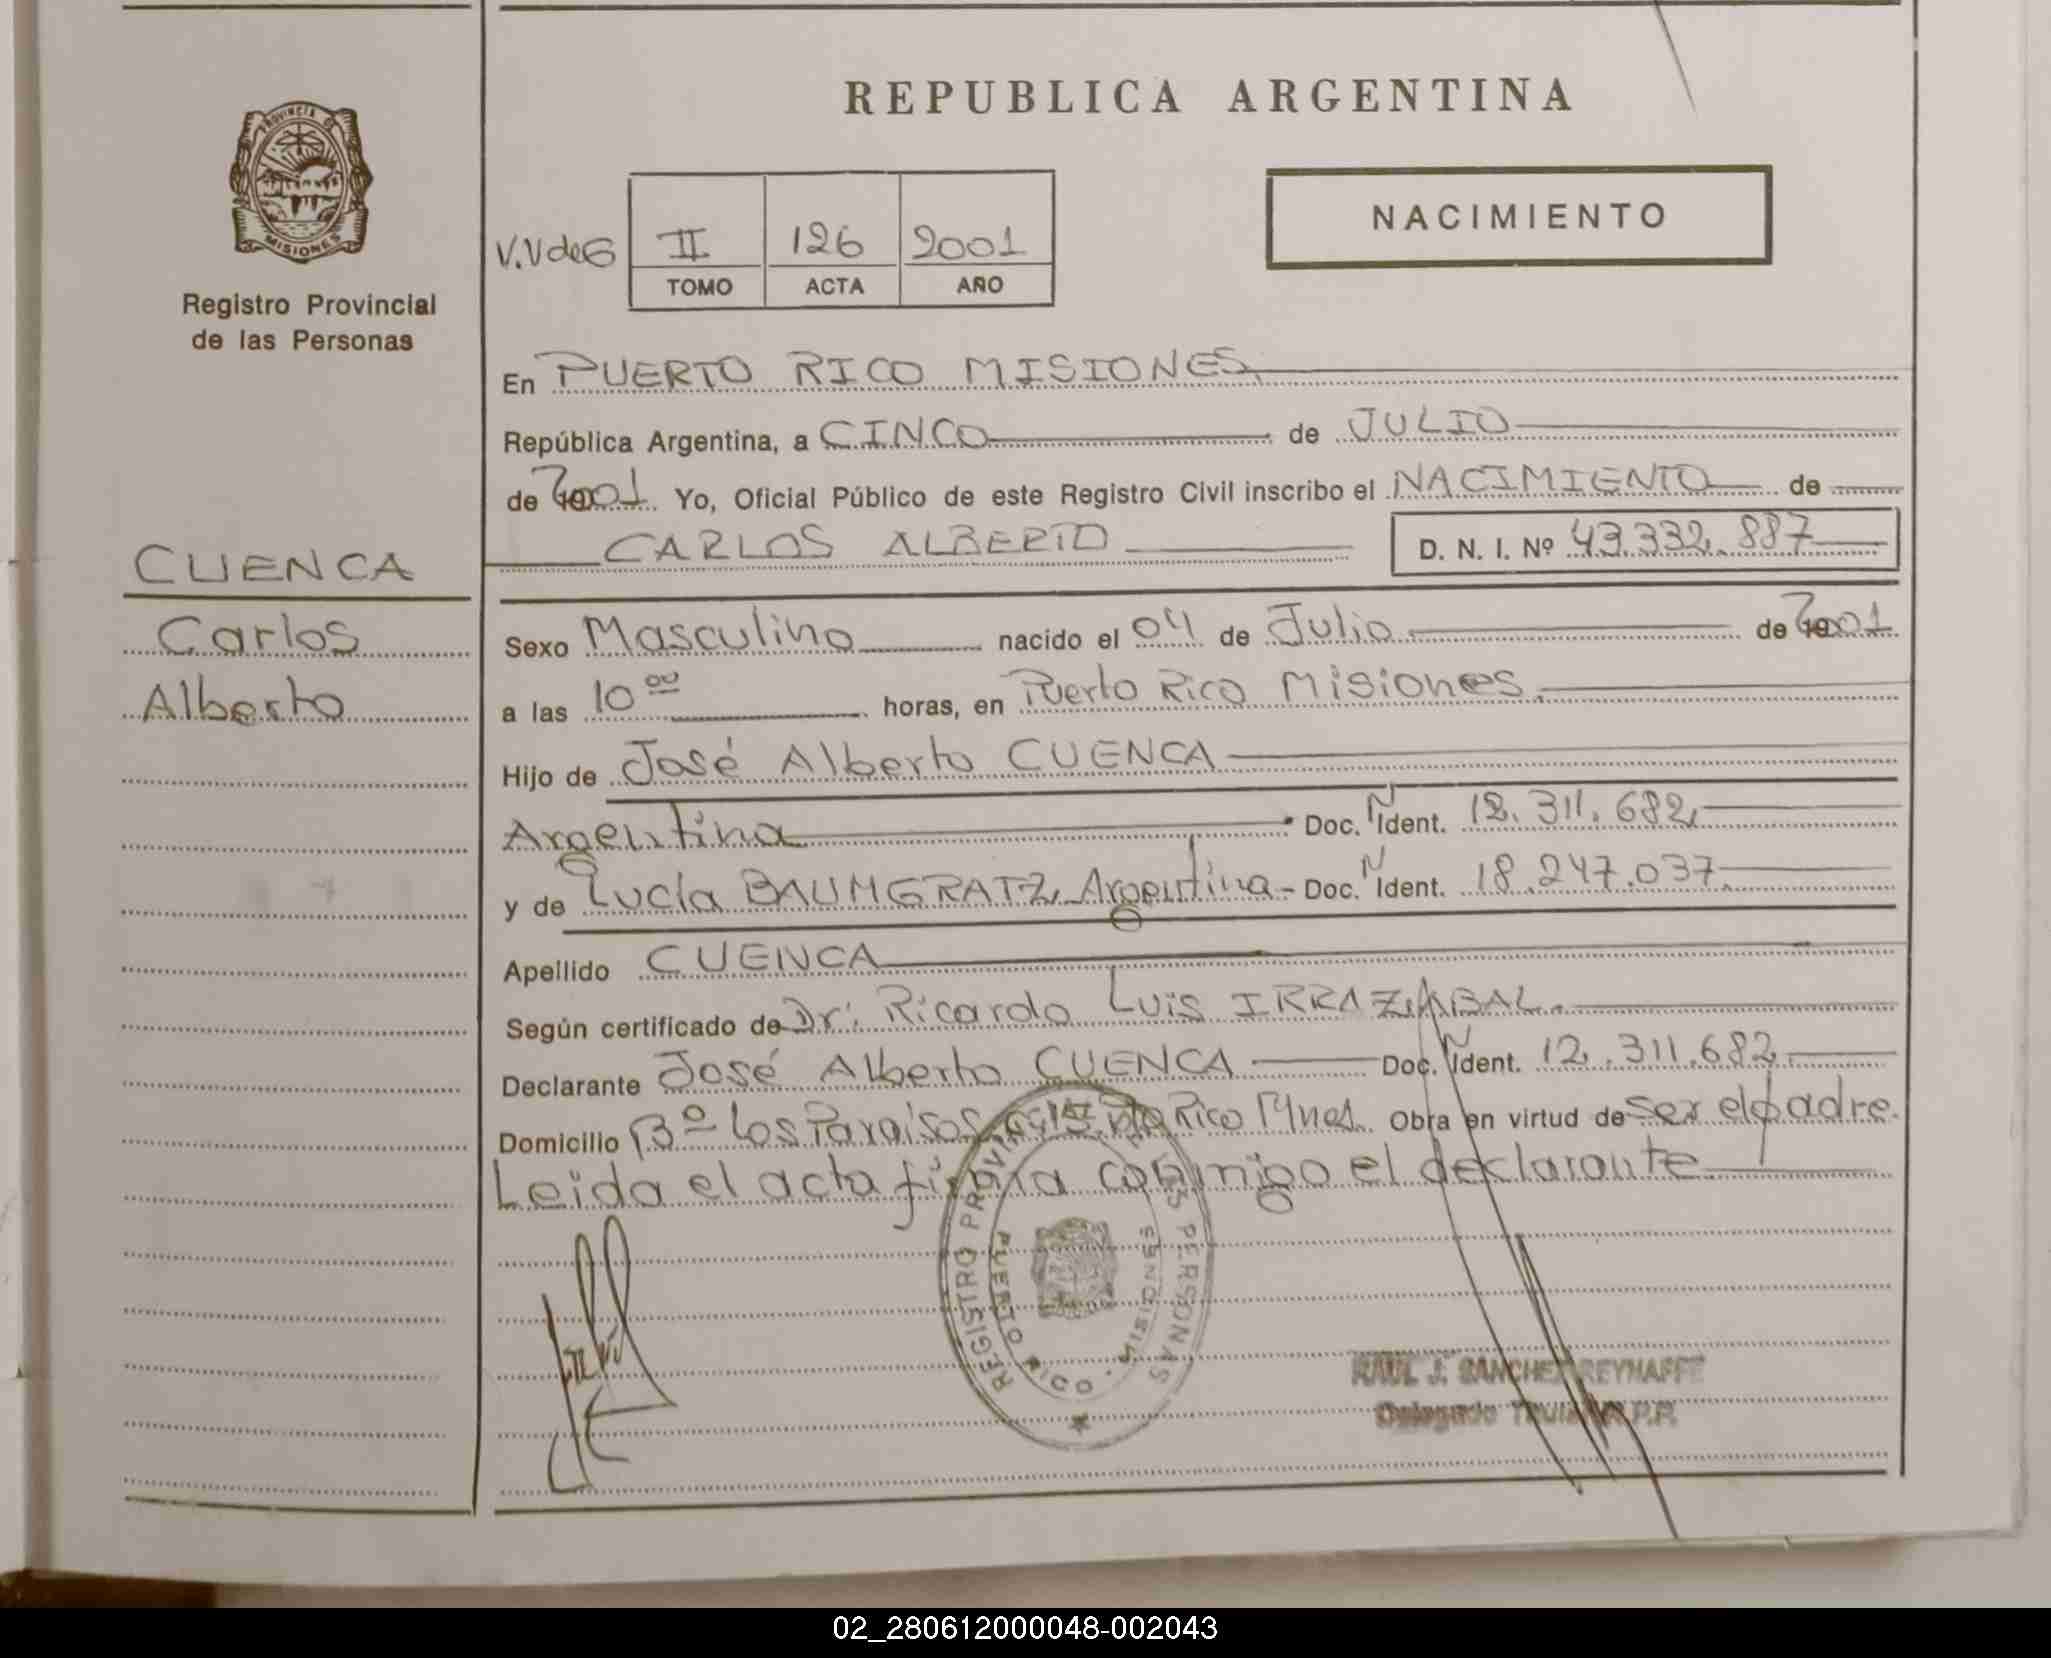 REPUBLICA ARGENTINA
PROVINCIA DE
MISIONES
Registro Provincial
de las Personas
NACIMIENTO
V.V de G II 126 2001
TOMO ACTA AÑO
En PUERTO RICO MISIONES
República Argentina, a CINCO de JULIO
de 2001 Yo, Oficial Público de este Registro Civil inscribo el NACIMIENTO de
CARLOS ALBERTO D. N. I. Nº 43.332.887
CUENCA
Carlos
Alberto
Sexo Masculino nacido el 04 de Julio de 2001
a las 10 00 horas, en Puerto Rico Misiones
Hijo de José Alberto CUENCA
Argentina Doc. N Ident. 12.311.682
y de Lucía BAUMGRATZ Argentina - Doc. N Ident. 18.247.037
Apellido CUENCA
Según certificado de Dr: Ricardo Luis IRRAZABAL
Declarante José Alberto CUENCA Doc. N Ident. 12.311.682
Domicilio Bº Los Paraísos Pto Rico Mnes. Obra en virtud de ser el padre.
Leida el acta firma conmigo el declarante
REGISTRO PROVINCIAL DE LAS PERSONAS
PUERTO RICO - MISIONES
RAUL J. SANCHEZ REYNAFFE
Delegado Titular R.P.P.
02_280612000048-002043